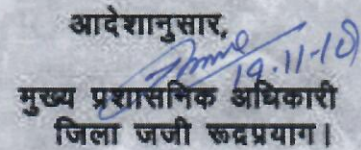 आदेशानुसार,
19-11-18
मुख्य प्रशासनिक अधिकारी
जिला जजी रूद्रप्रयाग।